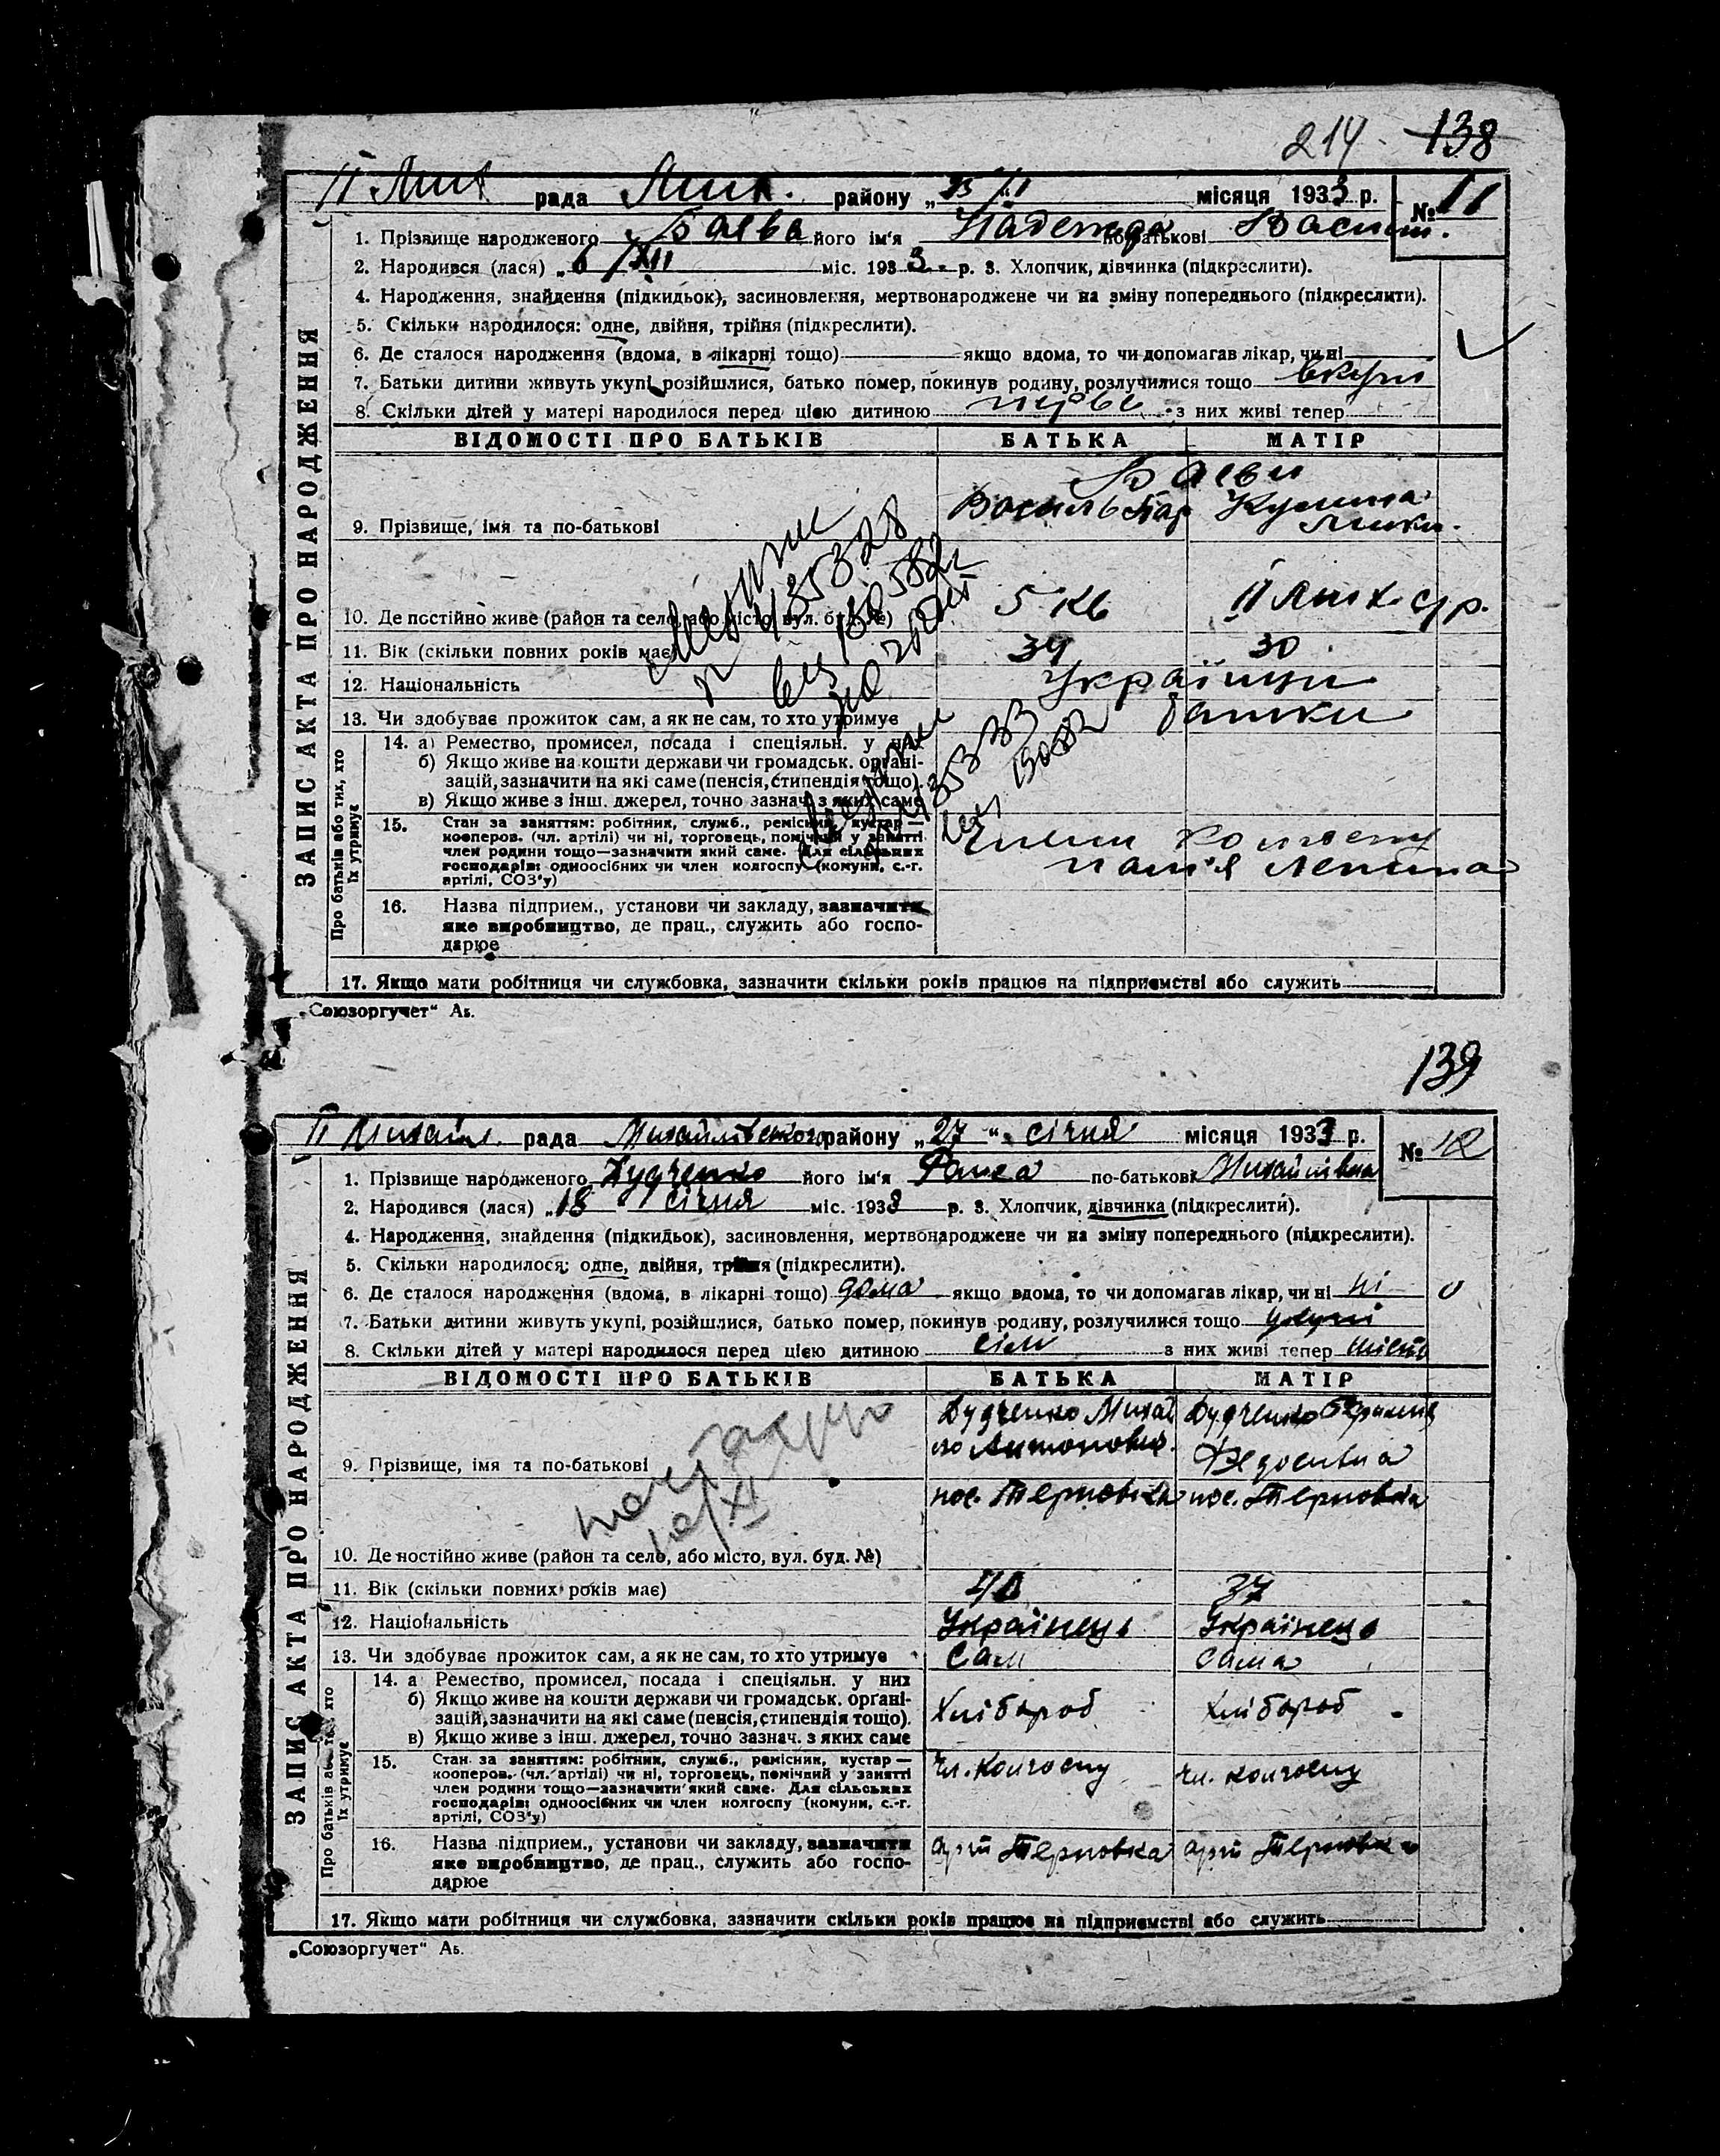 214 138
II Мих рада Мих. району „25 /I місяця 1933 р. № 11
1. Прізвище народженого Баева його ім'я Надежда по-батькові Васил.
2. Народився (лася) „6 /XII міс. 1933 р. 3. Хлопчик, дівчинка (підкреслити).
4. Народження, знайдення (підкидьок), засиновлення, мертвонароджене чи на зміну попереднього (підкреслити).
5. Скільки народилося: одне, двійня, трійня (підкреслити).
6. Де сталося народження (вдома, в лікарні тощо) якщо вдома, то чи допомагав лікар, чи ні
7. Батьки дитини живуть укупі, розійшлися, батько помер, покинув родину, розлучилися тощо вкупи
8. Скільки дітей у матері народилося перед цією дитиною перве з них живі тепер
ВІДОМОСТІ ПРО БАТЬКІВ БАТЬКА МАТІР
Баеви
9. Прізвище, імя та по-батькові Василь
10. Де постійно живе (район та село, або місто, вул. буд. №) 5 кв II Мих. с/р.
11. Вік (скільки повних років має) 34 30
12. Національність Українци
13. Чи здобуває прожиток сам, а як не сам, то хто утримує батьки
14. а) Ремество, промисел, посада і спеціяльн. у них
б) Якщо живе на кошти держави чи громадськ. органі-
зацій, зазначити на які саме (пенсія, стипендія тощо).
в) Якщо живе з інш. джерел, точно зазнач. з яких саме
15. Стан за заняттям: робітник, служб., ремісник, кустар —
кооперов. (чл. артілі) чи ні, торговець, помічний у занятті
член родини тощо—зазначити який саме. Для сільських
господарів: одноосібних чи член колгоспу (комуни, с.-г.
артілі, СОЗ'у)
Члени колгоспу
Ленина
16. Назва підприєм., установи чи закладу, зазначити
яке виробництво, де прац., служить або госпо-
дарює
17. Якщо мати робітниця чи службовка, зазначити скільки років працює на підприємстві або служить
ЗАПИС АКТА ПРО НАРОДЖЕННЯ
Про батьків або тих, хто
їх утримує
„Союзоргучет“ Аь.
139
II Михайл. рада Михайлівського району „27 “ січня місяця 1933 р. № 12
1. Прізвище народженого Дудченко його ім'я Раиса по-батькові Михайлівна
2. Народився (лася) „18 січня міс. 1933 р. 3. Хлопчик, дівчинка (підкреслити).
4. Народження, знайдення (підкидьок), засиновлення, мертвонароджене чи на зміну попереднього (підкреслити).
5. Скільки народилося: одне, двійня, трійня (підкреслити).
6. Де сталося народження (вдома, в лікарні тощо) дома якщо вдома, то чи допомагав лікар, чи ні ні
7. Батьки дитини живуть укупі, розійшлися, батько помер, покинув родину, розлучилися тощо укупі
8. Скільки дітей у матері народилося перед цією дитиною сім з них живі тепер шість
ВІДОМОСТІ ПРО БАТЬКІВ БАТЬКА МАТІР
Дудченко Михай Дудченко
ло Антонович. Федосивна
9. Прізвище, імя та по-батькові
пос. Терновка пос. Терновка
10. Де постійно живе (район та село, або місто, вул. буд. №)
11. Вік (скільки повних років має) 40 37
12. Національність Українець Українець
13. Чи здобуває прожиток сам, а як не сам, то хто утримує Сам Сама
14. а Ремество, промисел, посада і спеціяльн. у них
б) Якщо живе на кошти держави чи громадськ. органі-
зацій, зазначити на які саме (пенсія, стипендія тощо).
в) Якщо живе з інш. джерел, точно зазнач. з яких саме
Хлібороб Хлібороб
15. Стан за заняттям: робітник, служб., ремісник, кустар —
кооперов. (чл. артілі) чи ні, торговець, помічний у занятті
член родини тощо—зазначити який саме. Для сільських
господарів: одноосібних чи член колгоспу (комуни, с.-г.
артілі, СОЗ'у)
Чл. колгоспу чл. колгоспу
16. Назва підприєм., установи чи закладу, зазначити
яке виробництво, де прац., служить або госпо-
дарює
арт Терновка арт Терновка
17. Якщо мати робітниця чи службовка, зазначити скільки років працює на підприємстві або служить
ЗАПИС АКТА ПРО НАРОДЖЕННЯ
Про батьків або тих, хто
їх утримує
„Союзоргучет“ Аь.